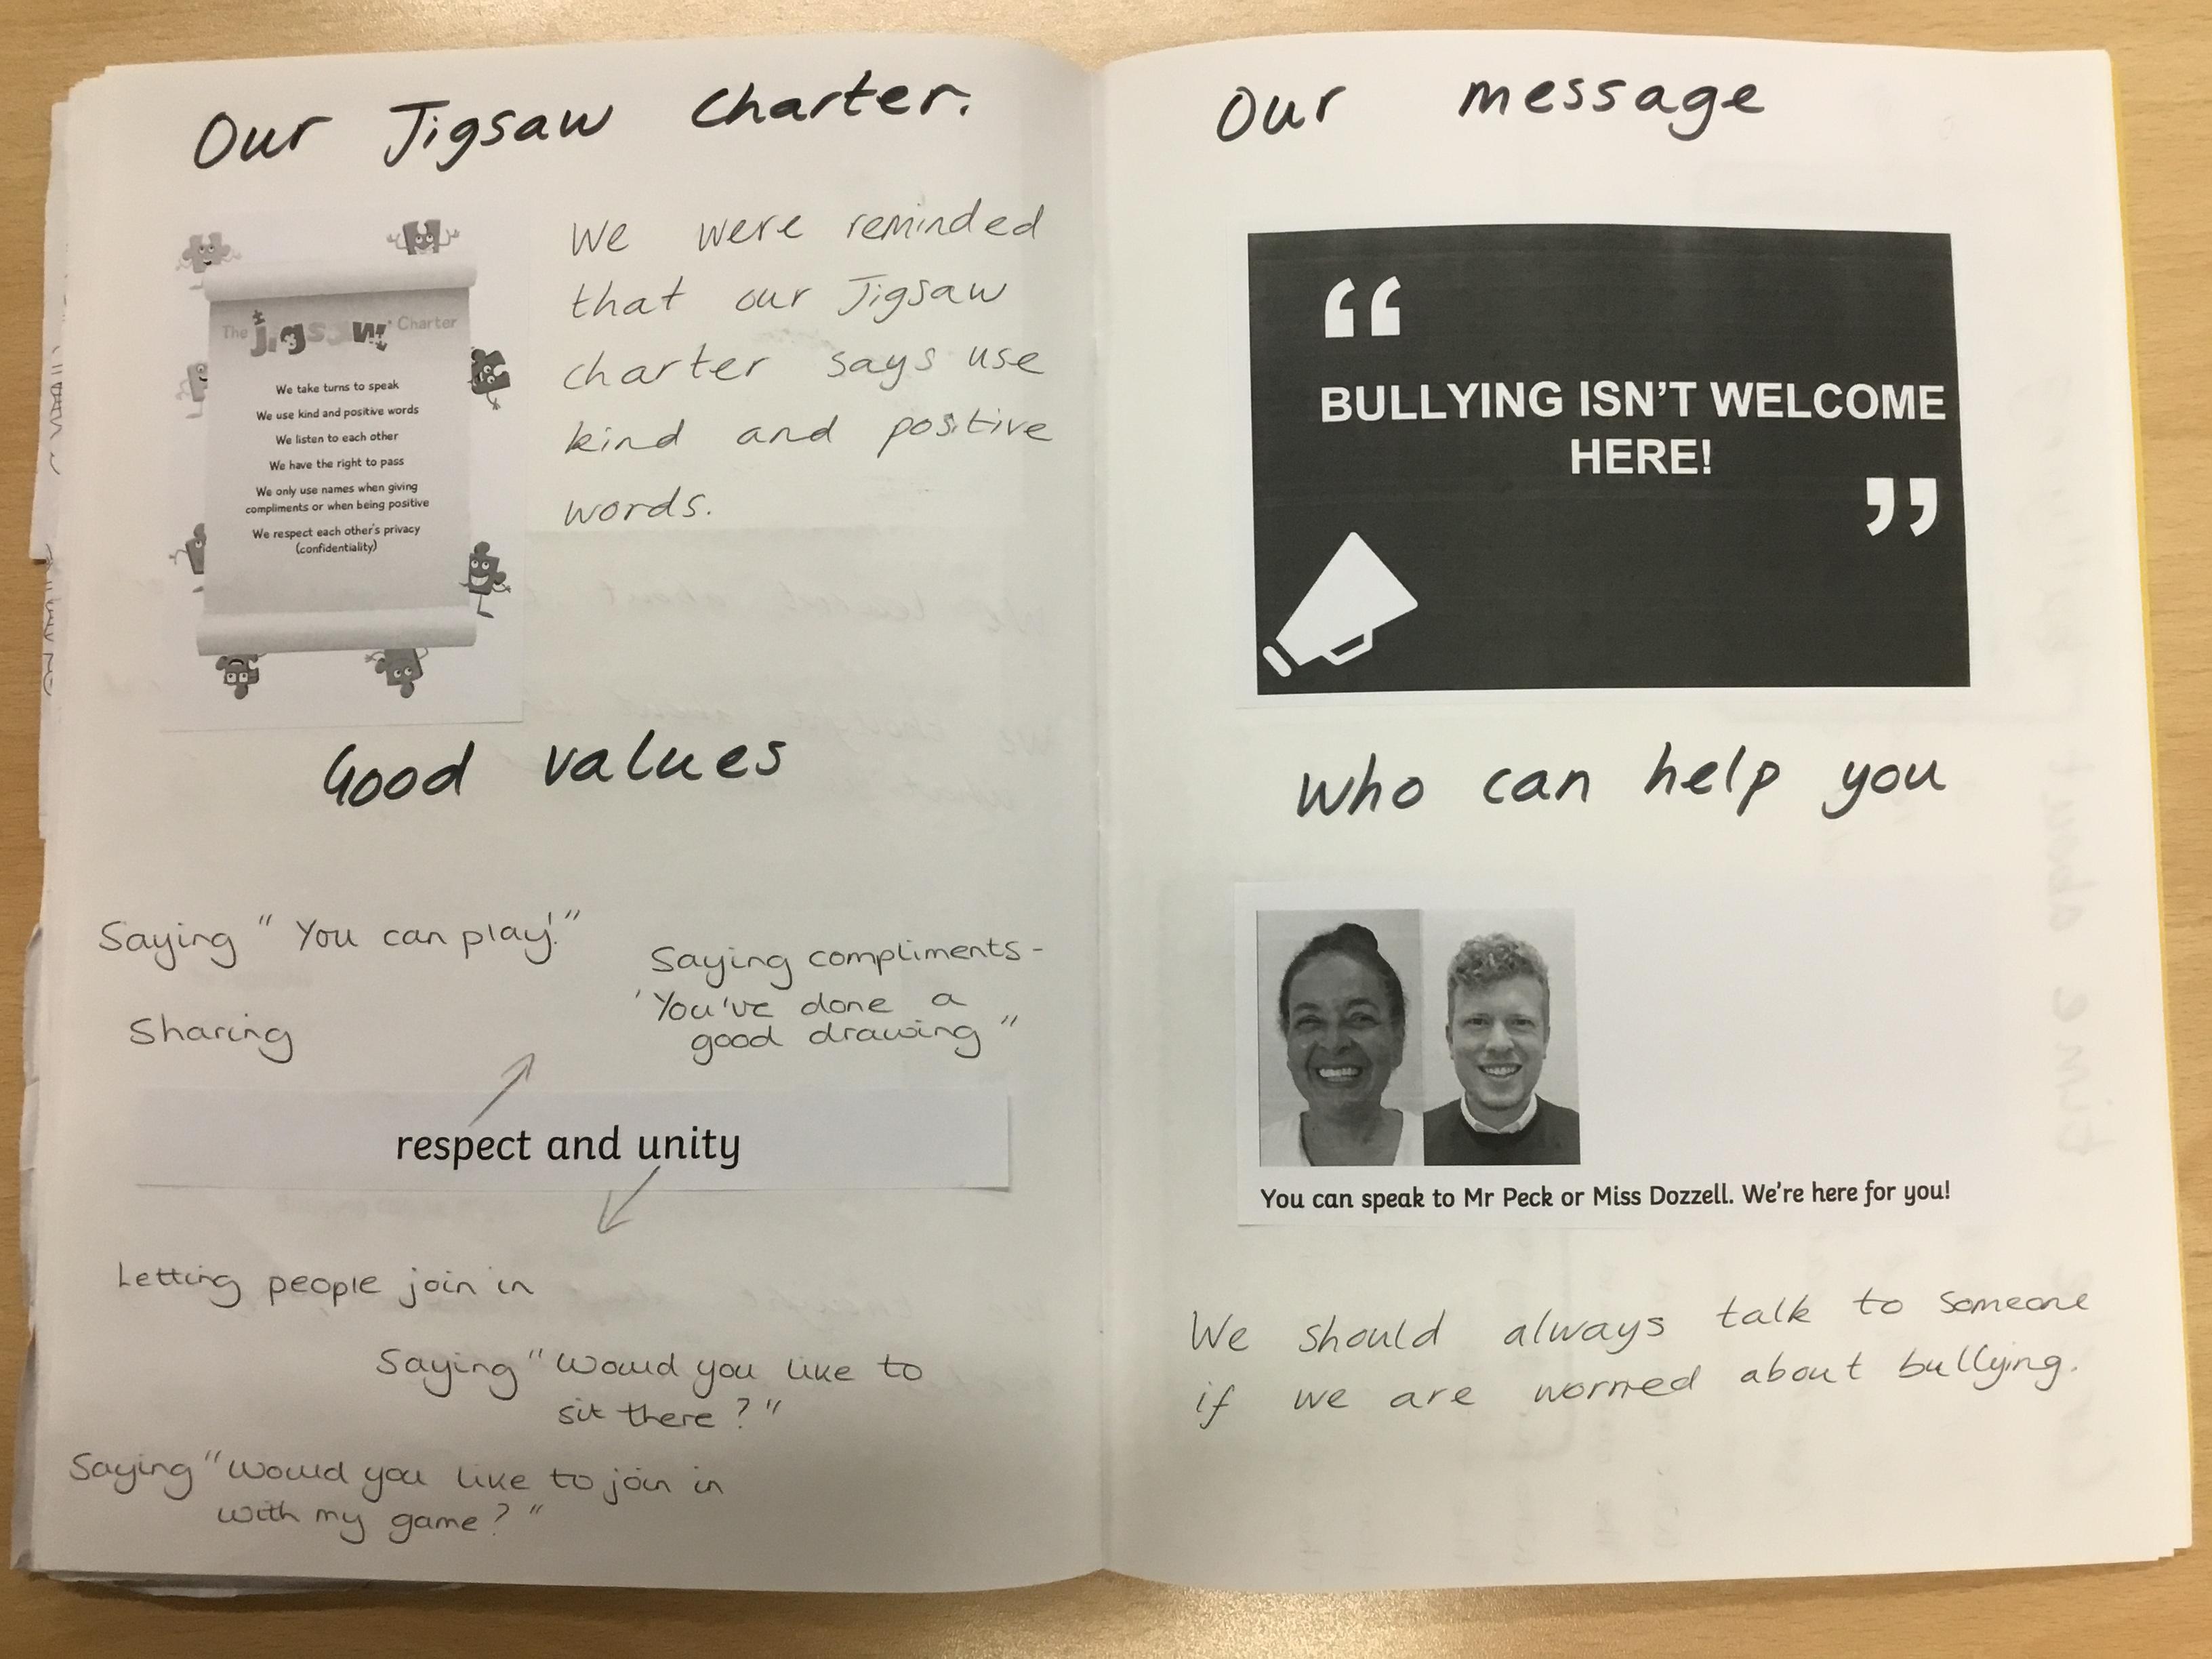 Our Jigsaw charter.
The jigsaw Charter
We take turns to speak
We use kind and positive words
We listen to each other
We have the right to pass
We only use names when giving
compliments or when being positive
We respect each other's privacy
(confidentiality)
We were reminded
that our Jigsaw
charter says use
kind and positive
words.
Good values
Saying "You can play!"
Saying compliments-
'You've done a
good drawing"
Sharing
respect and unity
Letting people join in
Saying "Would you like to
sit there?"
Saying "Would you like to join in
with my game?"
Our message
“
BULLYING ISN'T WELCOME
HERE!
”
who can help you
You can speak to Mr Peck or Miss Dozzell. We're here for you!
We should always talk to someone
if we are worried about bullying.